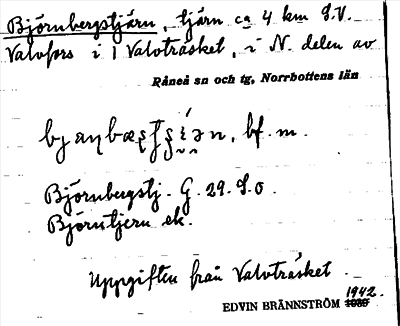 Björnbergstjärn, tjärn ca 4 km S.V.
Valvfors i l Valvträsket, i N. delen av
Råneå sn och tg, Norrbottens län
bf. m.
Björnbergstj. G. 29. S.O.
Björntjern ek.
Uppgiften från Valvträsket
1942.
EDVIN BRÄNNSTRÖM 1939